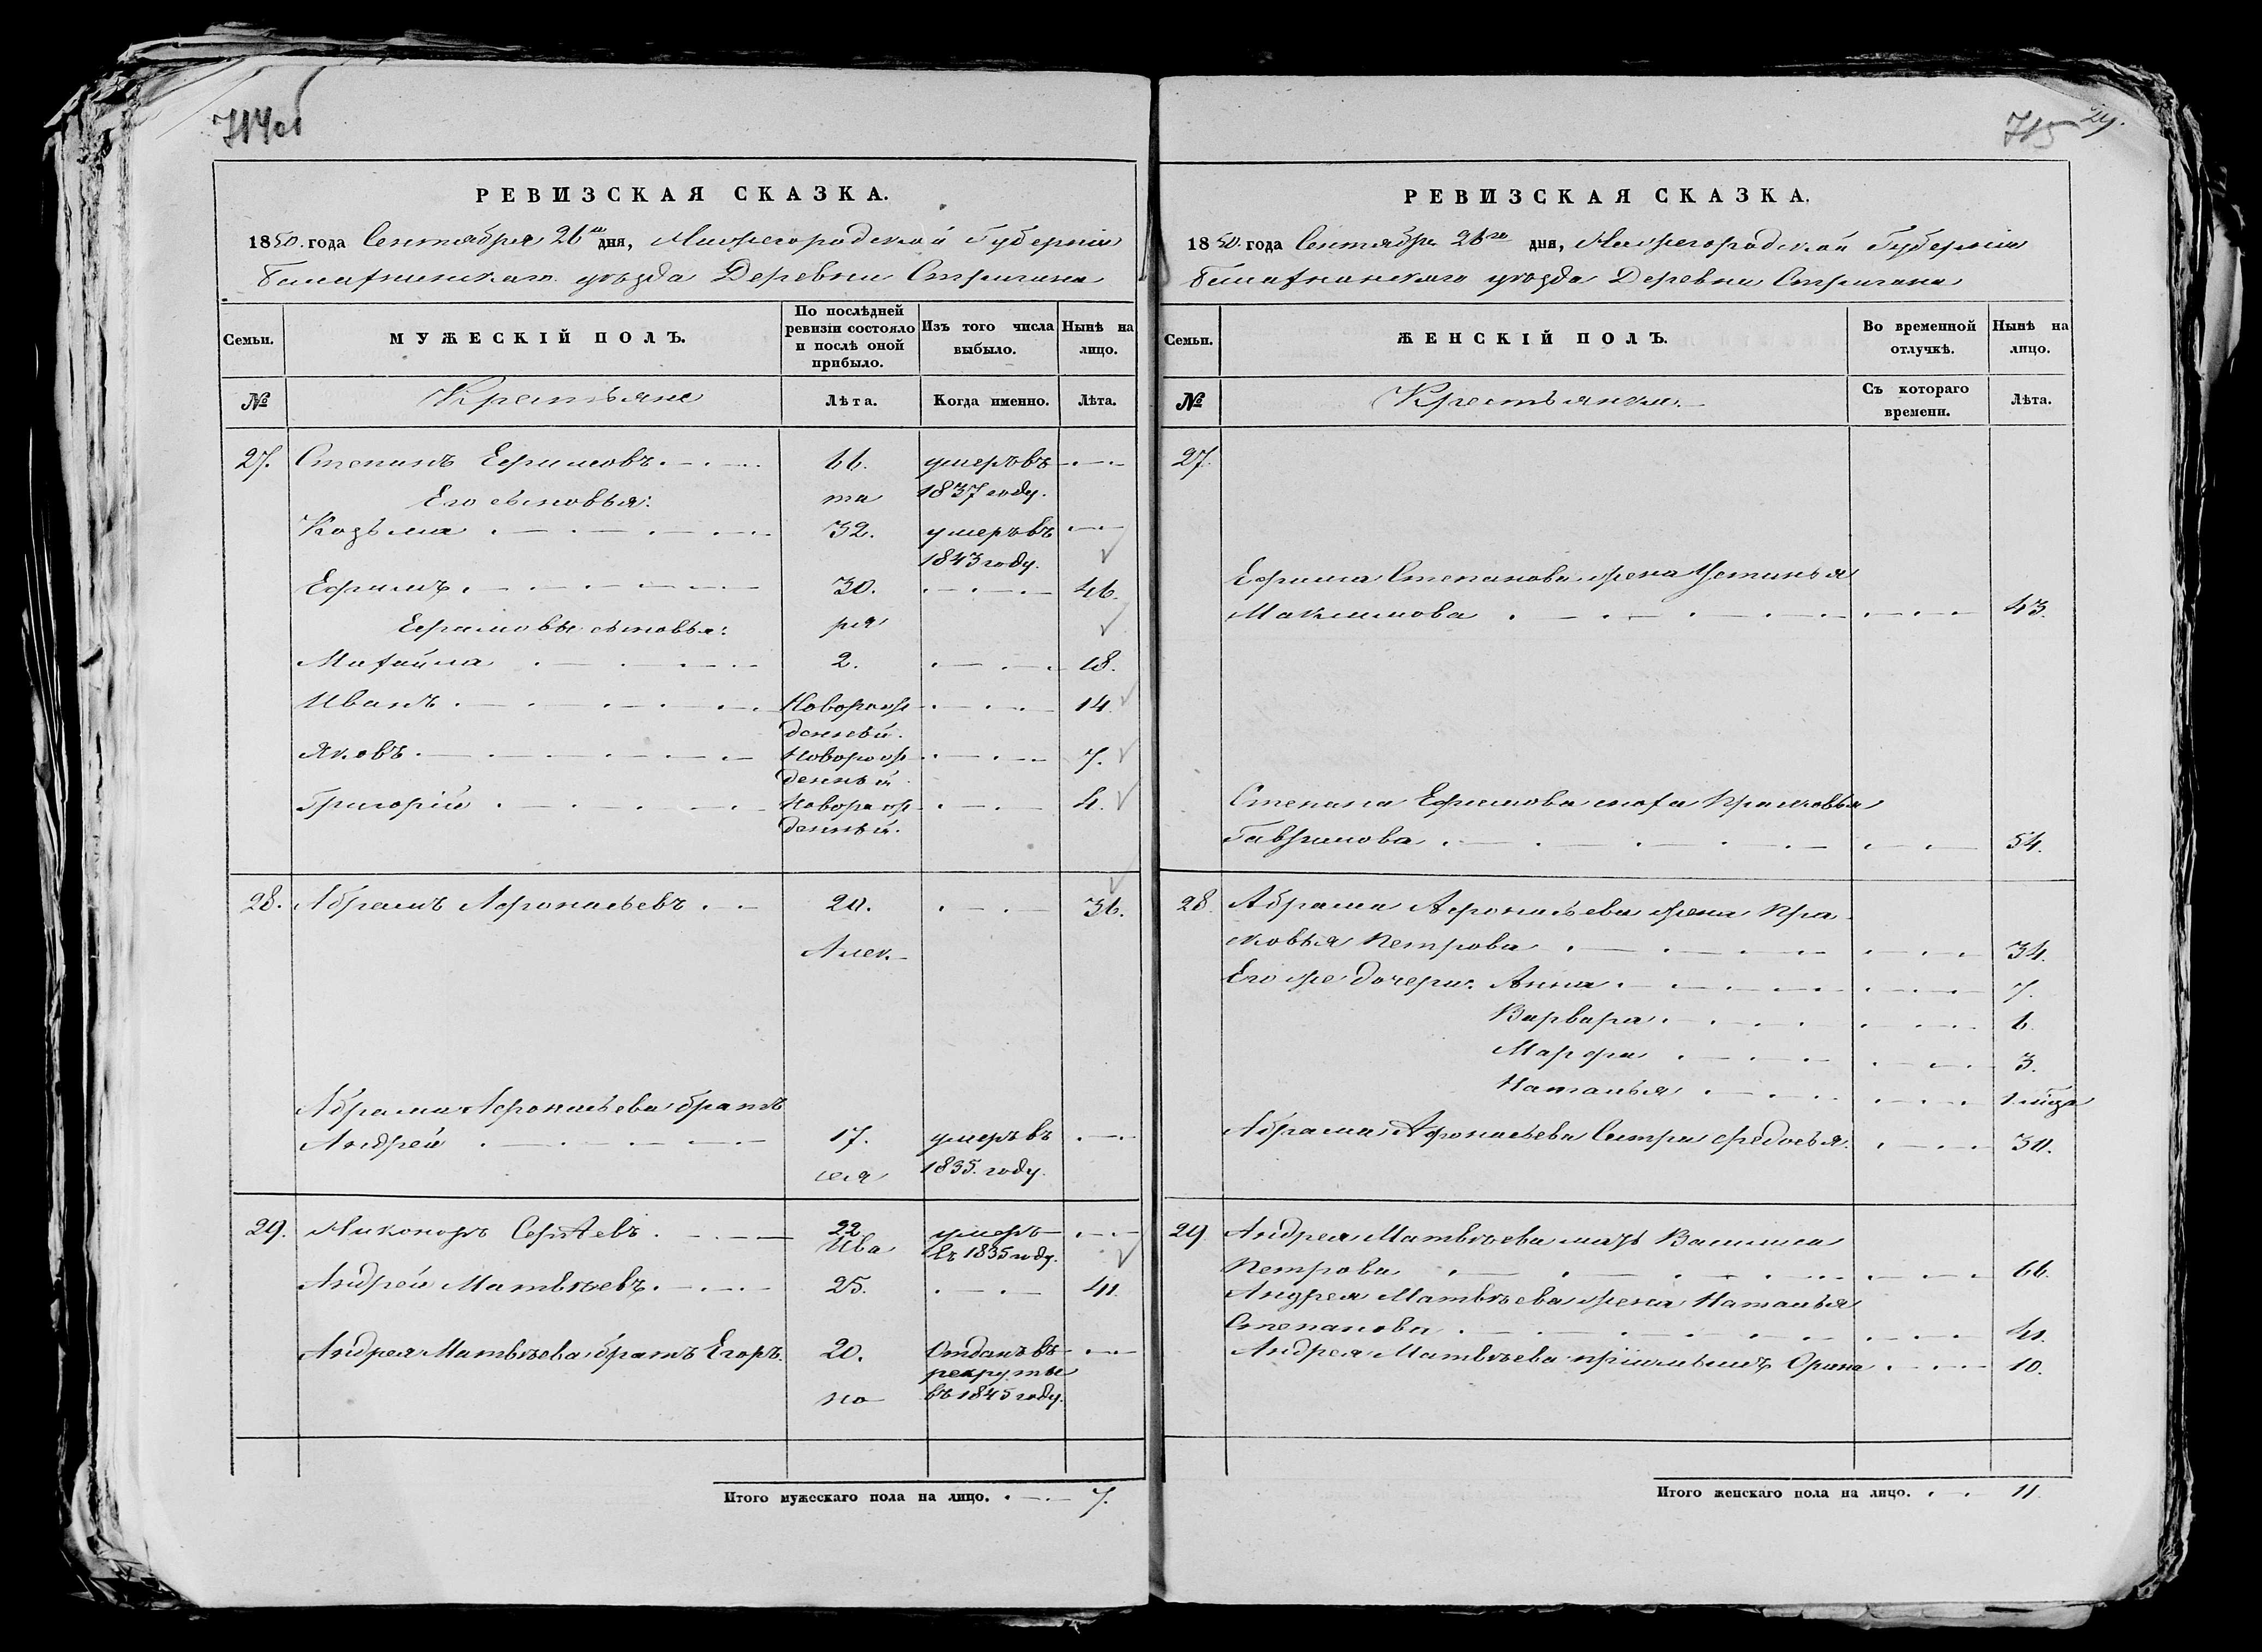 714об
РЕВИЗСКАЯ СКАЗКА.
1850. года Сентября 26го дня, Нижегородской Губерніи
Балахнинскаго уѣзда Деревни Стригина
Семьи.
МУЖЕСКІЙ ПОЛЪ.
По послѣдней
ревизіи состояло
и послѣ оной
прибыло.
Изъ того числа
выбыло.
Нынѣ на
лицо.
№
Крестьяне
Лѣта.
Когда именно.
Лѣта.
27. Степанъ Ефимовъ 66. умеръ въ
Его сыновья: та 1837 году.
Козьма 32. умеръ въ
1843 году.
Ефимъ 30. 46.
Ефимовы сыновья: ря
Михайла 2. 18.
Иванъ Новорож 14.
денный.
Яковъ Новорож 7.
денный
Григорій Новорож 4.
денный.
28. Абрамъ Афонасьевъ 20. 36.
Алек.
Абрама Афонасьева братъ
Андрей 17. умеръ въ
сея 1835. году.
29. Никоноръ Сергѣевъ 22. умеръ
Ива въ 1835 году.
Андрей Матвѣевъ 25. 41.
Андрея Матвѣева братъ Егоръ. 20. Отданъ въ
рекруты
но въ 1845 году.
Итого мужескаго пола на лицо. 7.
715 29.
РЕВИЗСКАЯ СКАЗКА.
1850. года Сентября 26го дня, Нижегородской Губерніи
Балахнинскаго уѣзда Деревни Стригина
Семьи.
ЖЕНСКІЙ ПОЛЪ.
Во временной
отлучкѣ.
Нынѣ на
лицо.
№
Крестьянки.
Съ котораго
времени.
Лѣта.
27.
Ефима Степанова жена Устинья
Максимова 43.
Степана Ефимова сноха Прасковья
Гаврилова 54.
28. Абрама Афонасьева жена Пра
сковья Петрова 34.
Его же дочери: Анна 7.
Варвара 6.
Марфа 3.
Наталья 1. мѣся
Абрама Афонасьева Сестра Федосья. 30.
29 Андрея Матвѣева мать Василиса
Петрова 66.
Андрея Матвѣева жена Наталья
Степанова 41.
Андрея Матвѣева пріимышъ Орина 10.
Итого женскаго пола на лицо. 11.